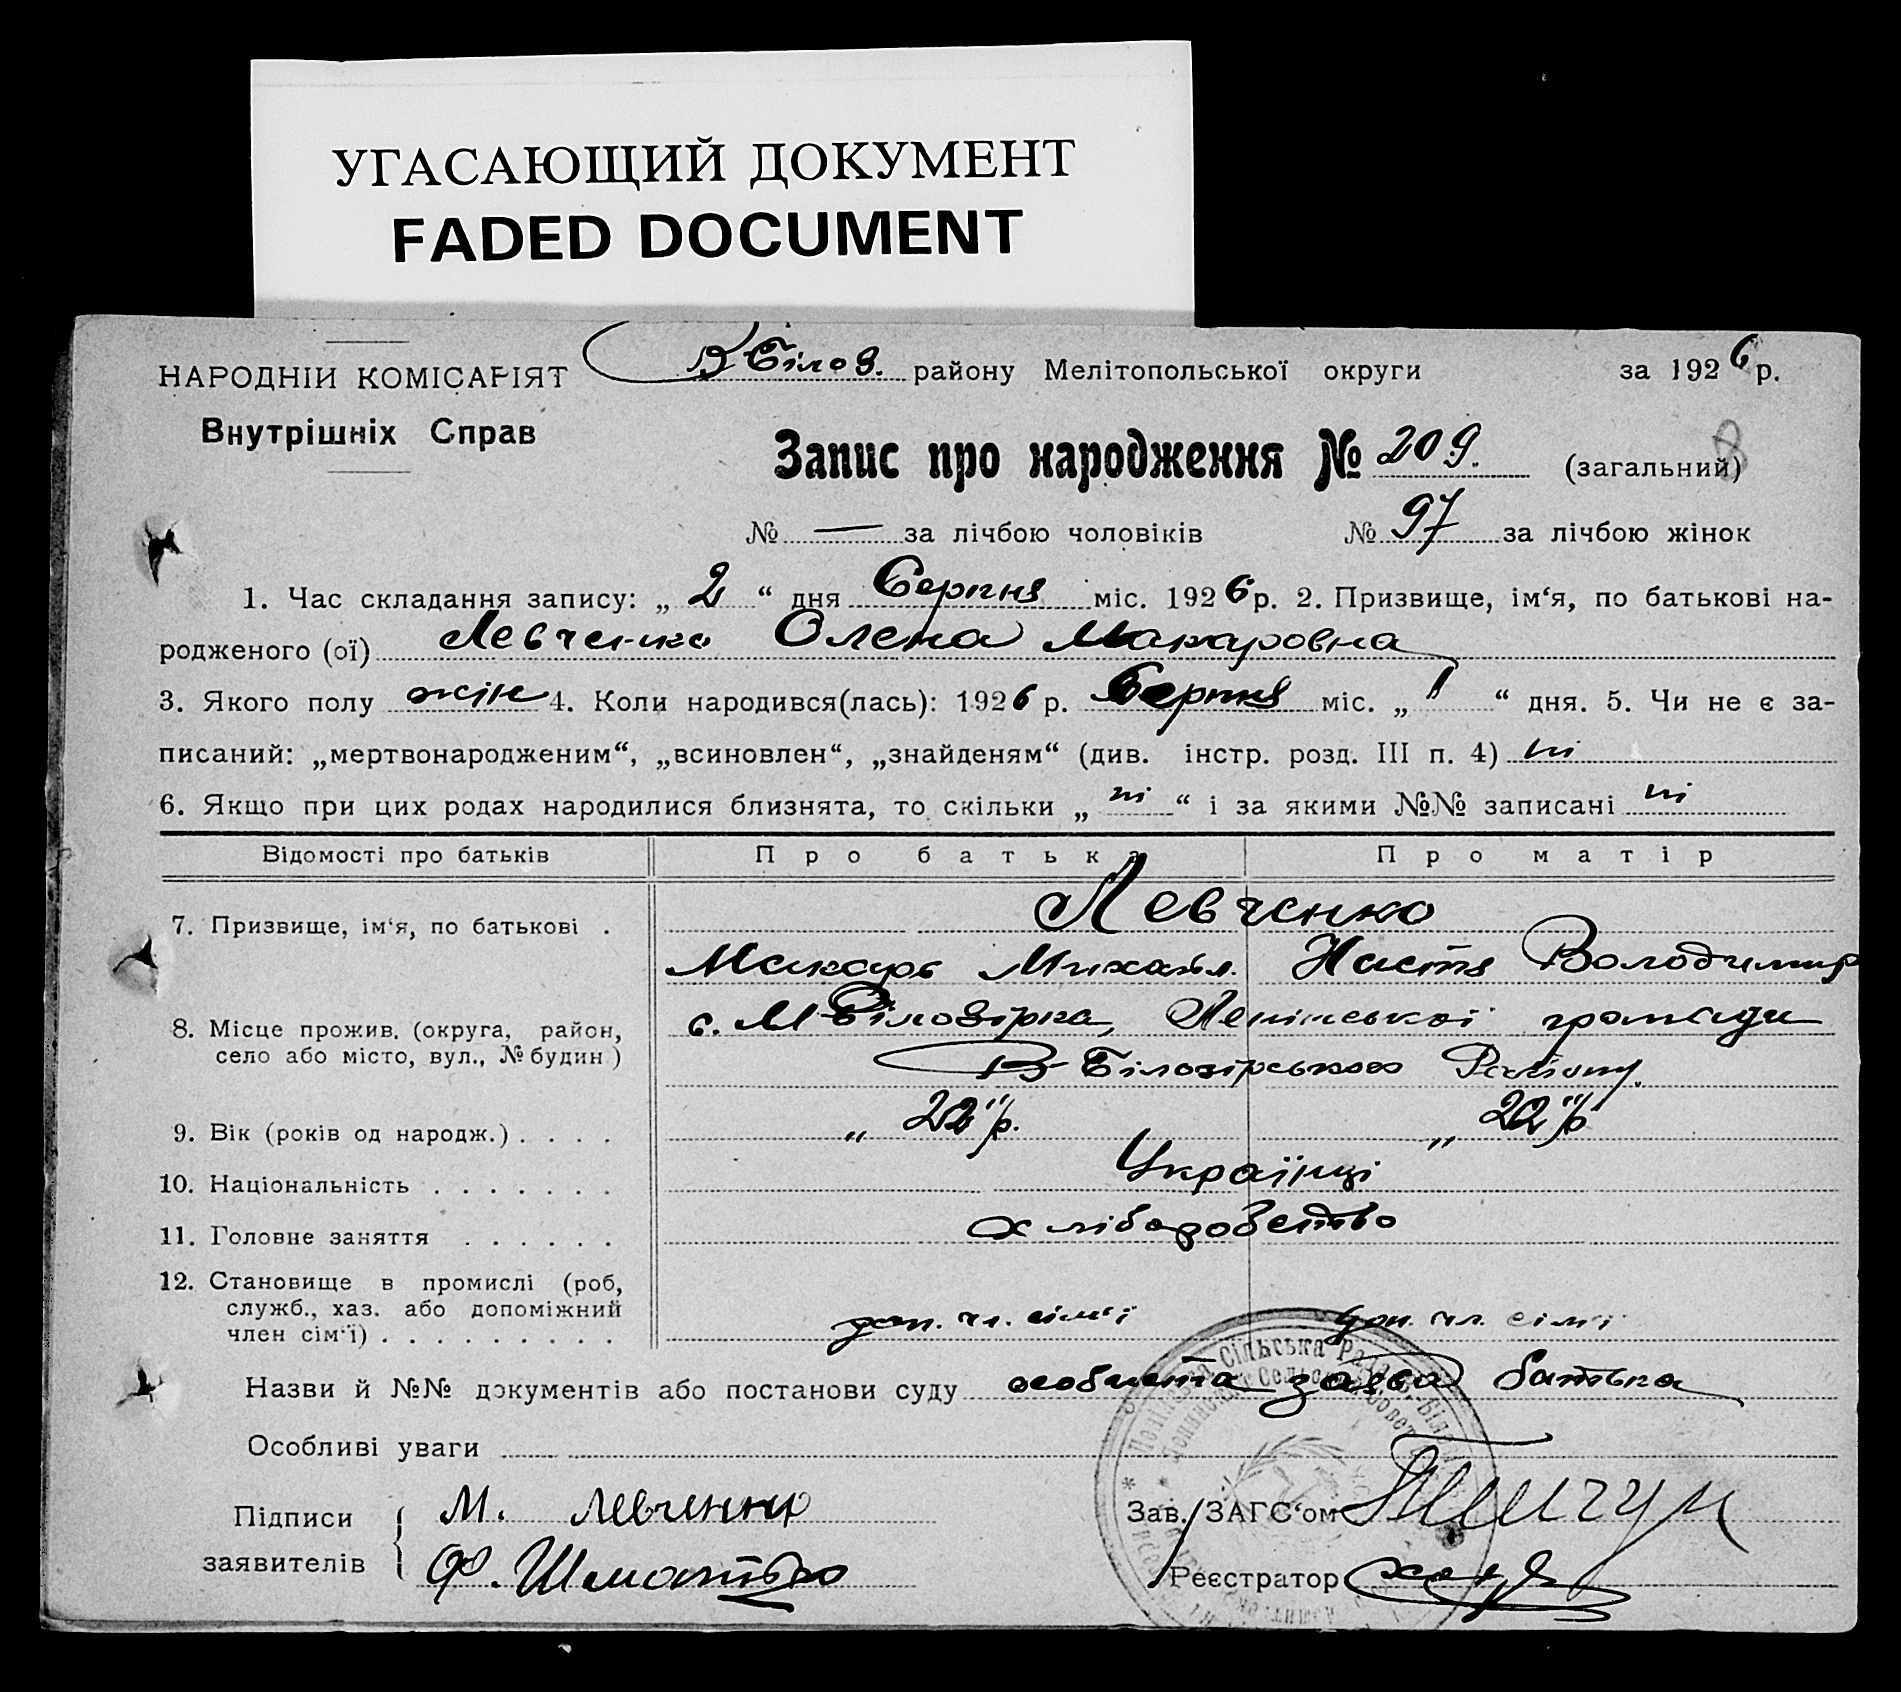 УГАСАЮЩИЙ ДОКУМЕНТ
FADED DOCUMENT
НАРОДНІЙ КОМІСАРІЯТ
Внутрішніх Справ
В Білоз. району Мелітопольської округи за 1926 р.
Запис про народження № 209. (загальний)
8
№ — за лічбою чоловіків № 97 за лічбою жінок
1. Час складання запису: „ 2 “ дня Серпня міс. 1926 р. 2. Призвище, ім‘я, по батькові на-
родженого (ої) Левченко Олена Макаровна
3. Якого полу жін 4. Коли народився(лась): 1926 р. Серпня міс. „ 1 “ дня. 5. Чи не є за-
писаний: „мертвонародженим“, „всиновлен“, „знайденям“ (див. інстр. розд. III п. 4) ні
6. Якщо при цих родах народилися близнята, то скільки „ ні “ і за якими №№ записані ні
Відомості про батьків Про батька Про матір
7. Призвище, ім‘я, по батькові . Левченко
Макарь Михайл. Настя Володимир
8. Місце прожив. (округа, район,
село або місто, вул., № будин )
с. М Білозірка, Ленінської громади
В-Білозірського Району.
9. Вік (років од народж.) . . . . „ 22 р. „ 22 р
10. Національність . . . . . . . Українці
11. Головне заняття . . . . . . хліборобство
12. Становище в промислі (роб,
служб., хаз. або допоміжний
член сім‘ї) . . . . . . . . . доп. чл. сім‘ї доп. чл. сім‘ї
Назви й №№ документів або постанови суду особиста заява батька
Особливі уваги
Підписи
заявителів
М. Левченко
Ф. Шматько
Зав. ЗАГС‘ом
Реєстратор
Сільська Рада